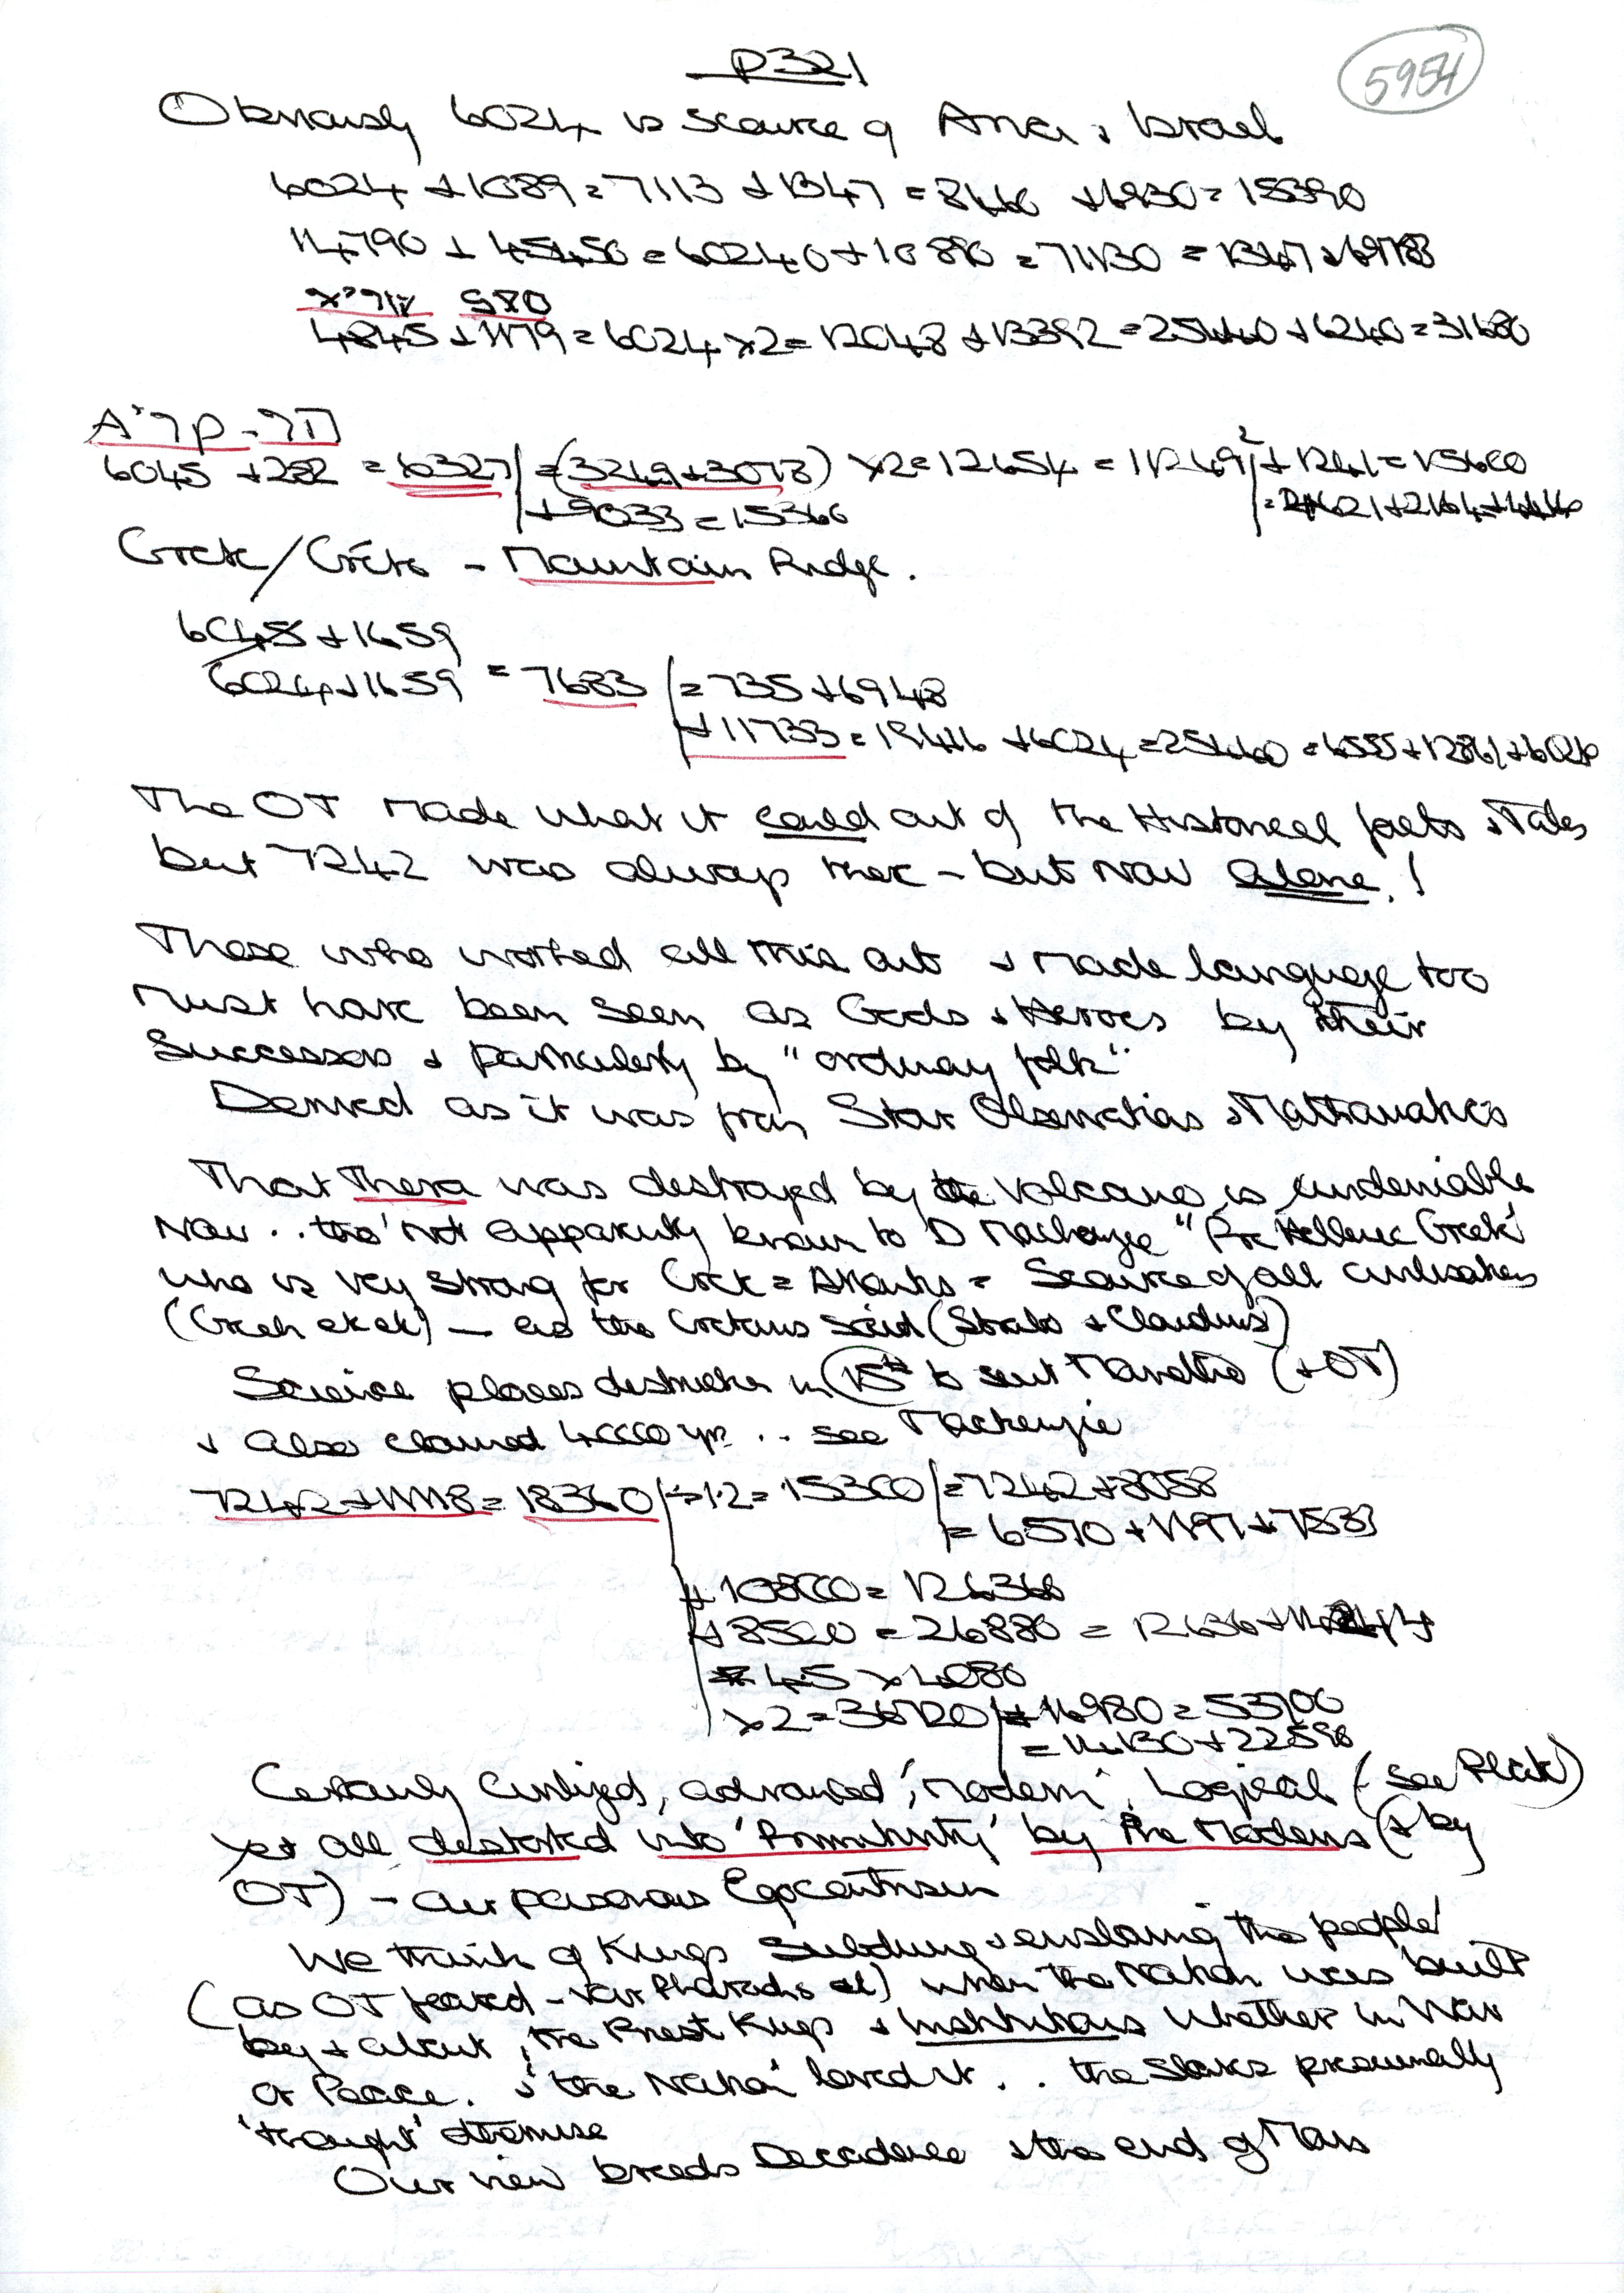 P321
5954
Obviously 6024 is source of & Israel
6024 + 1089 = 7113 + 1347 = 8460 + 6930 = 15390
14790 + 45450 = 60240 + 10890 = 71130 =
4845 + 1179 = 6024 x 2 = 12048 + 13392 = 25440 + 6240 = 31680
6045 + 282 = 6327 = (3249 + 3078) x 2 = 12654 =
+ 9033 = 15360
Crete/Crēte - Mountain Ridge.
6045 + 1659
6024 + 1659 = 7683 = 735 + 6948
+ 11733 = 19416 + 6024 = 25440 =
The OT made what it could out of the Historical facts & Tales
but 7242 was always there - but now alone!
Those who worked all this out & made language too
must have been seen as Gods & Heroes by their
Successors & particularly by "ordinary folk"
Derived as it was from Star Observations & Mathematics
That Thera was destroyed by the Volcano is undeniable
Now .. tho' not apparently known to D Mackenzie "Pre Hellenic Greek"
who is very strong for Crete = Atlantis = Source of all civilisation
(Greek et al) - as the Cretans said (Strabo & Claudius)
Science places destruction in 15th to suit (+ OT)
& also claimed 4000 yrs .. see Mackenzie
7242 + 11118 = 18360 ÷ 1.2 = 15300 = 7242 + 8058
= 6570 + 1197 + 7533
+ 108000 = 126360
+ 8520 = 26880 = 12636 +
= 4.5 x 4080
x 2 = 36720 + 16980 = 53700
= 14130 + 22590
Certainly Civilized, advanced, 'Modern', Logical (see Plato)
Yet all distorted into 'Primitivity' by the Moderns (& by
OT) - our poisonous Egocentrism
We think of Kings subduing & enslaving the people
(as OT feared - Pharaohs et al) when the Nation was built
by & about, the Priest Kings & Institutions whether in War
or Peace. & 'the Nation' loved it .. the Slaves presumably
'thought' otherwise
Our view breeds Decadence & the end of Man